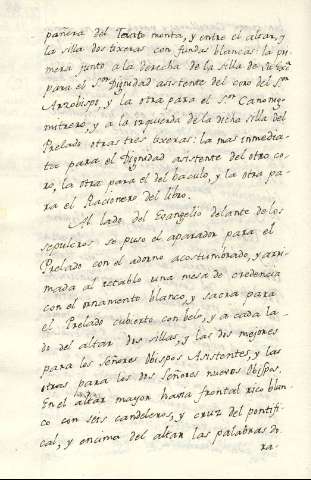 pañera del Texato monta, y entre el altar, y
la silla dos tixeras con fundas blancas: la pri
mera junto a la derecha de la silla de Su Ex.ª
para el S.or Dignidad asistente del coro del S.or
Arzobispo, y la otra para el S.or Canonigo
mitrero, y a la izquierda de la dicha silla del
Prelado otras tres tixeras: la mas inmedia-
ta para el Dignidad asistente del otro co-
ro, la otra para el del baculo, y la otra pa-
ra el Racionero del libro.
Al lado del Evangelio delante de los
sepulcros se puso el aparador para el
Prelado con el adorno acostumbrado, y arri-
mada al retablo una mesa de credencia
con el ornamento blanco, y sacra para
el Prelado cubierto con velo, y a cada la-
do del altar dos sillas, y las dos mejores
para los Señores Obispos Asistentes, y las
otras para los dos Señores nuevos Obispos.
En el altar mayor havia frontal rico blan
co con seis candeleros, y cruz del pontifi-
cal, y encima del altar las palabras de
ra-